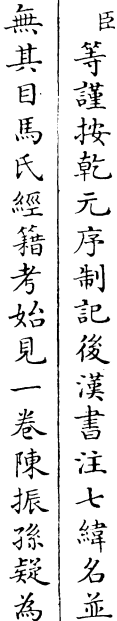 臣等謹按乾元序制記後漢書注七緯名並
無其目馬氏經籍考始見一卷陳振孫疑為